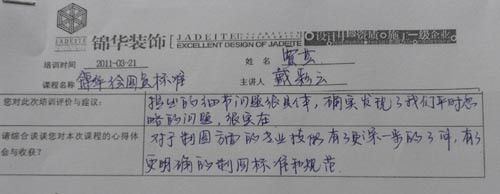 JADEITE
锦华装饰 JADEITE 设计甲级资质 施工一级企业
EXCELLENT DESIGN OF JADEITE
培训时间 2011-03-21 姓名
课程名称 锦华绘图员标准 主讲人 戴彩云
您对此次培训评价与建议: 提出的细节问题很具体,确实发现了我们平时忽
略的问题,很实在
请综合谈谈您对本次课程的心得体 对于制图方面的专业技能有了更深一步的了解,有了
会与收获? 更明确的制图标准和规范.